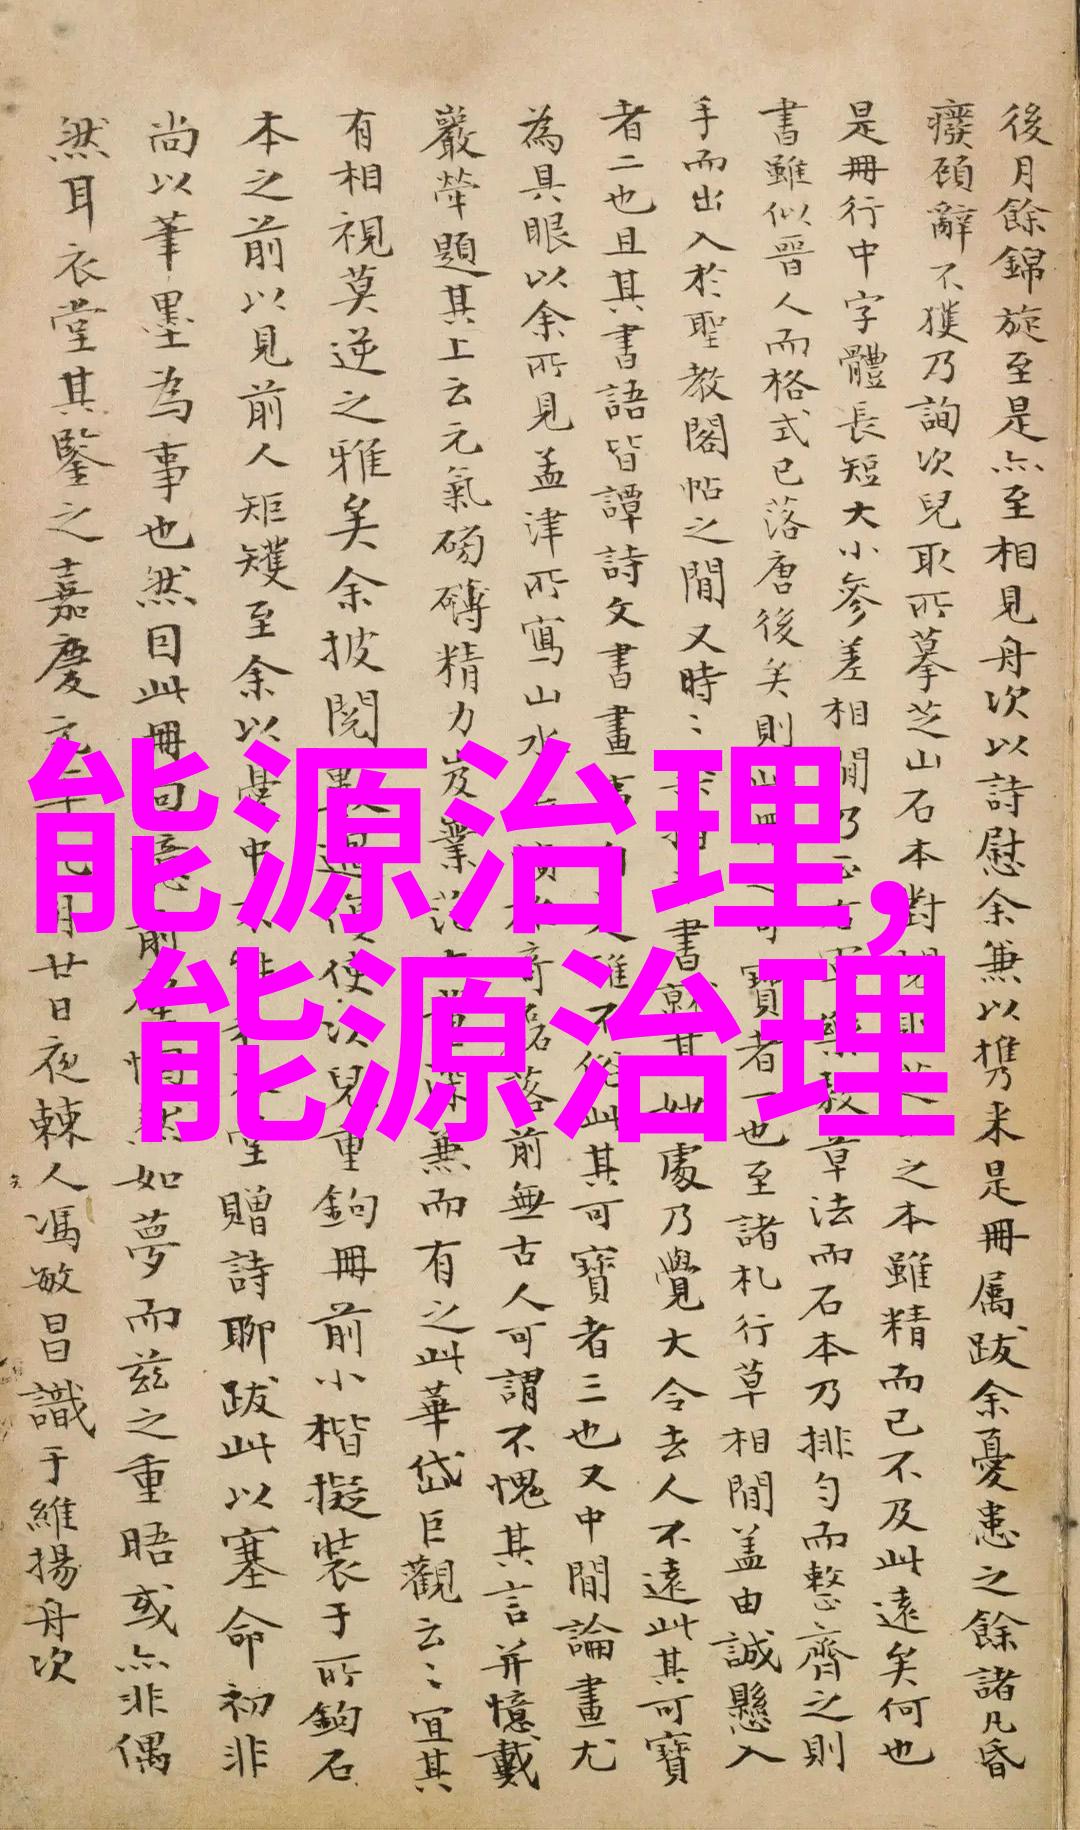 後月餘錦旋至是亦至相見舟次以詩慰余兼以携来是冊属跋余憂患之餘諸凡昏
癈頋辭不獲乃詢次兒取所摹芝山石本對之本雖精而已不及此遠矣何也
是冊行中字體長短大小參差相間乃草法而石本乃排勻而整齊之則
書雖似晋人而格式已落唐後矣則寶者一也至諸札行草相間盖由誠懸入
手而出入於聖教閣帖之間又時〻書就其妙處乃覺大令去人不遠此其可寶
者二也且其書語皆譚詩文書畫雖不俗此其可寶者三也又中間論畫尤
為具眼以余所見孟津所寫山水奇磊落前無古人可謂不愧其言并憶戴
巖犖題其上云元氣磅礴精力岌嶪兼而有之此華岱巨觀云〻宜其
有相視莫逆之雅矣余披閱數過復使次兒重鉤冊前小楷擬裝于所鉤石
本之前以見前人矩矱至余以贈詩聊跋此以塞命初非
尚以筆墨為事也然因此冊如夢而茲之重晤或亦非偶
然耳衣堂其鑒之嘉慶元年九月廿日夜棘人馮敏昌識于維揚舟次
能源治理,
能源治理